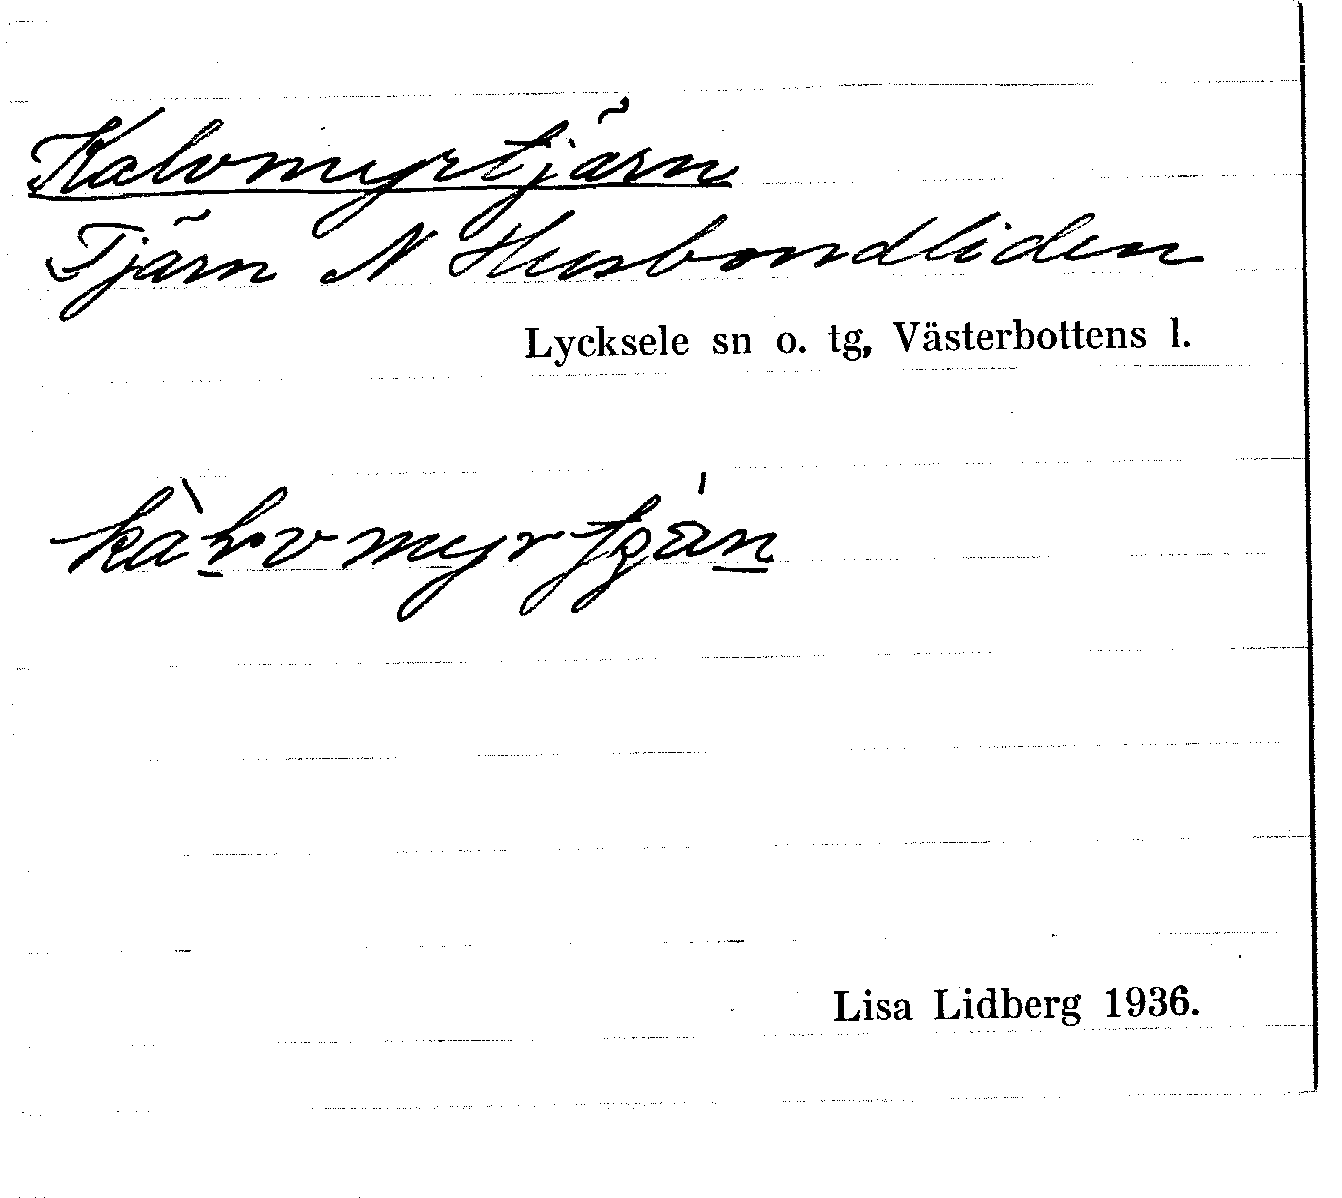 Kalvmyrtjärn
Tjärn N Husbondliden
Lycksele sn o. tg, Västerbottens l.
Lisa Lidberg 1936.